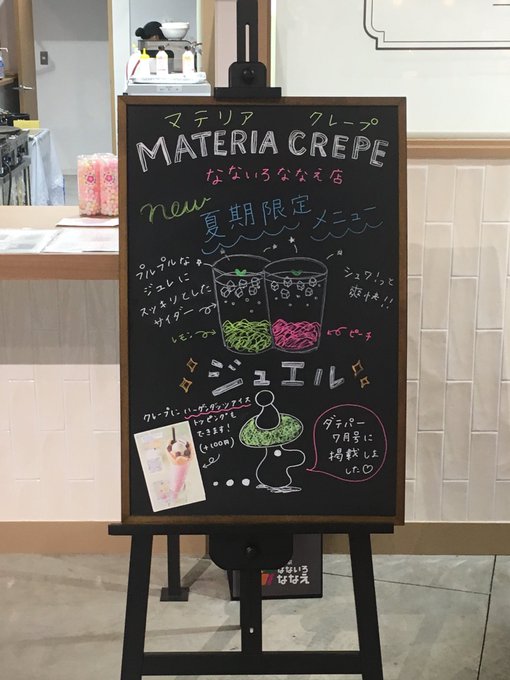 マテリア クレープ
MATERIA CREPE
なないろななえ店
new
夏期限定
メニュー
プルプルな
ジュレに
スッキリとした
サイダー
シュワ!って
爽快!!
レモン
ピーチ
ジュエル
クレープにハーゲンダッツアイス
トッピングも
できます!
(+100円)
ダテパー
7月号に
掲載しま
した♡
なないろ
ななえ